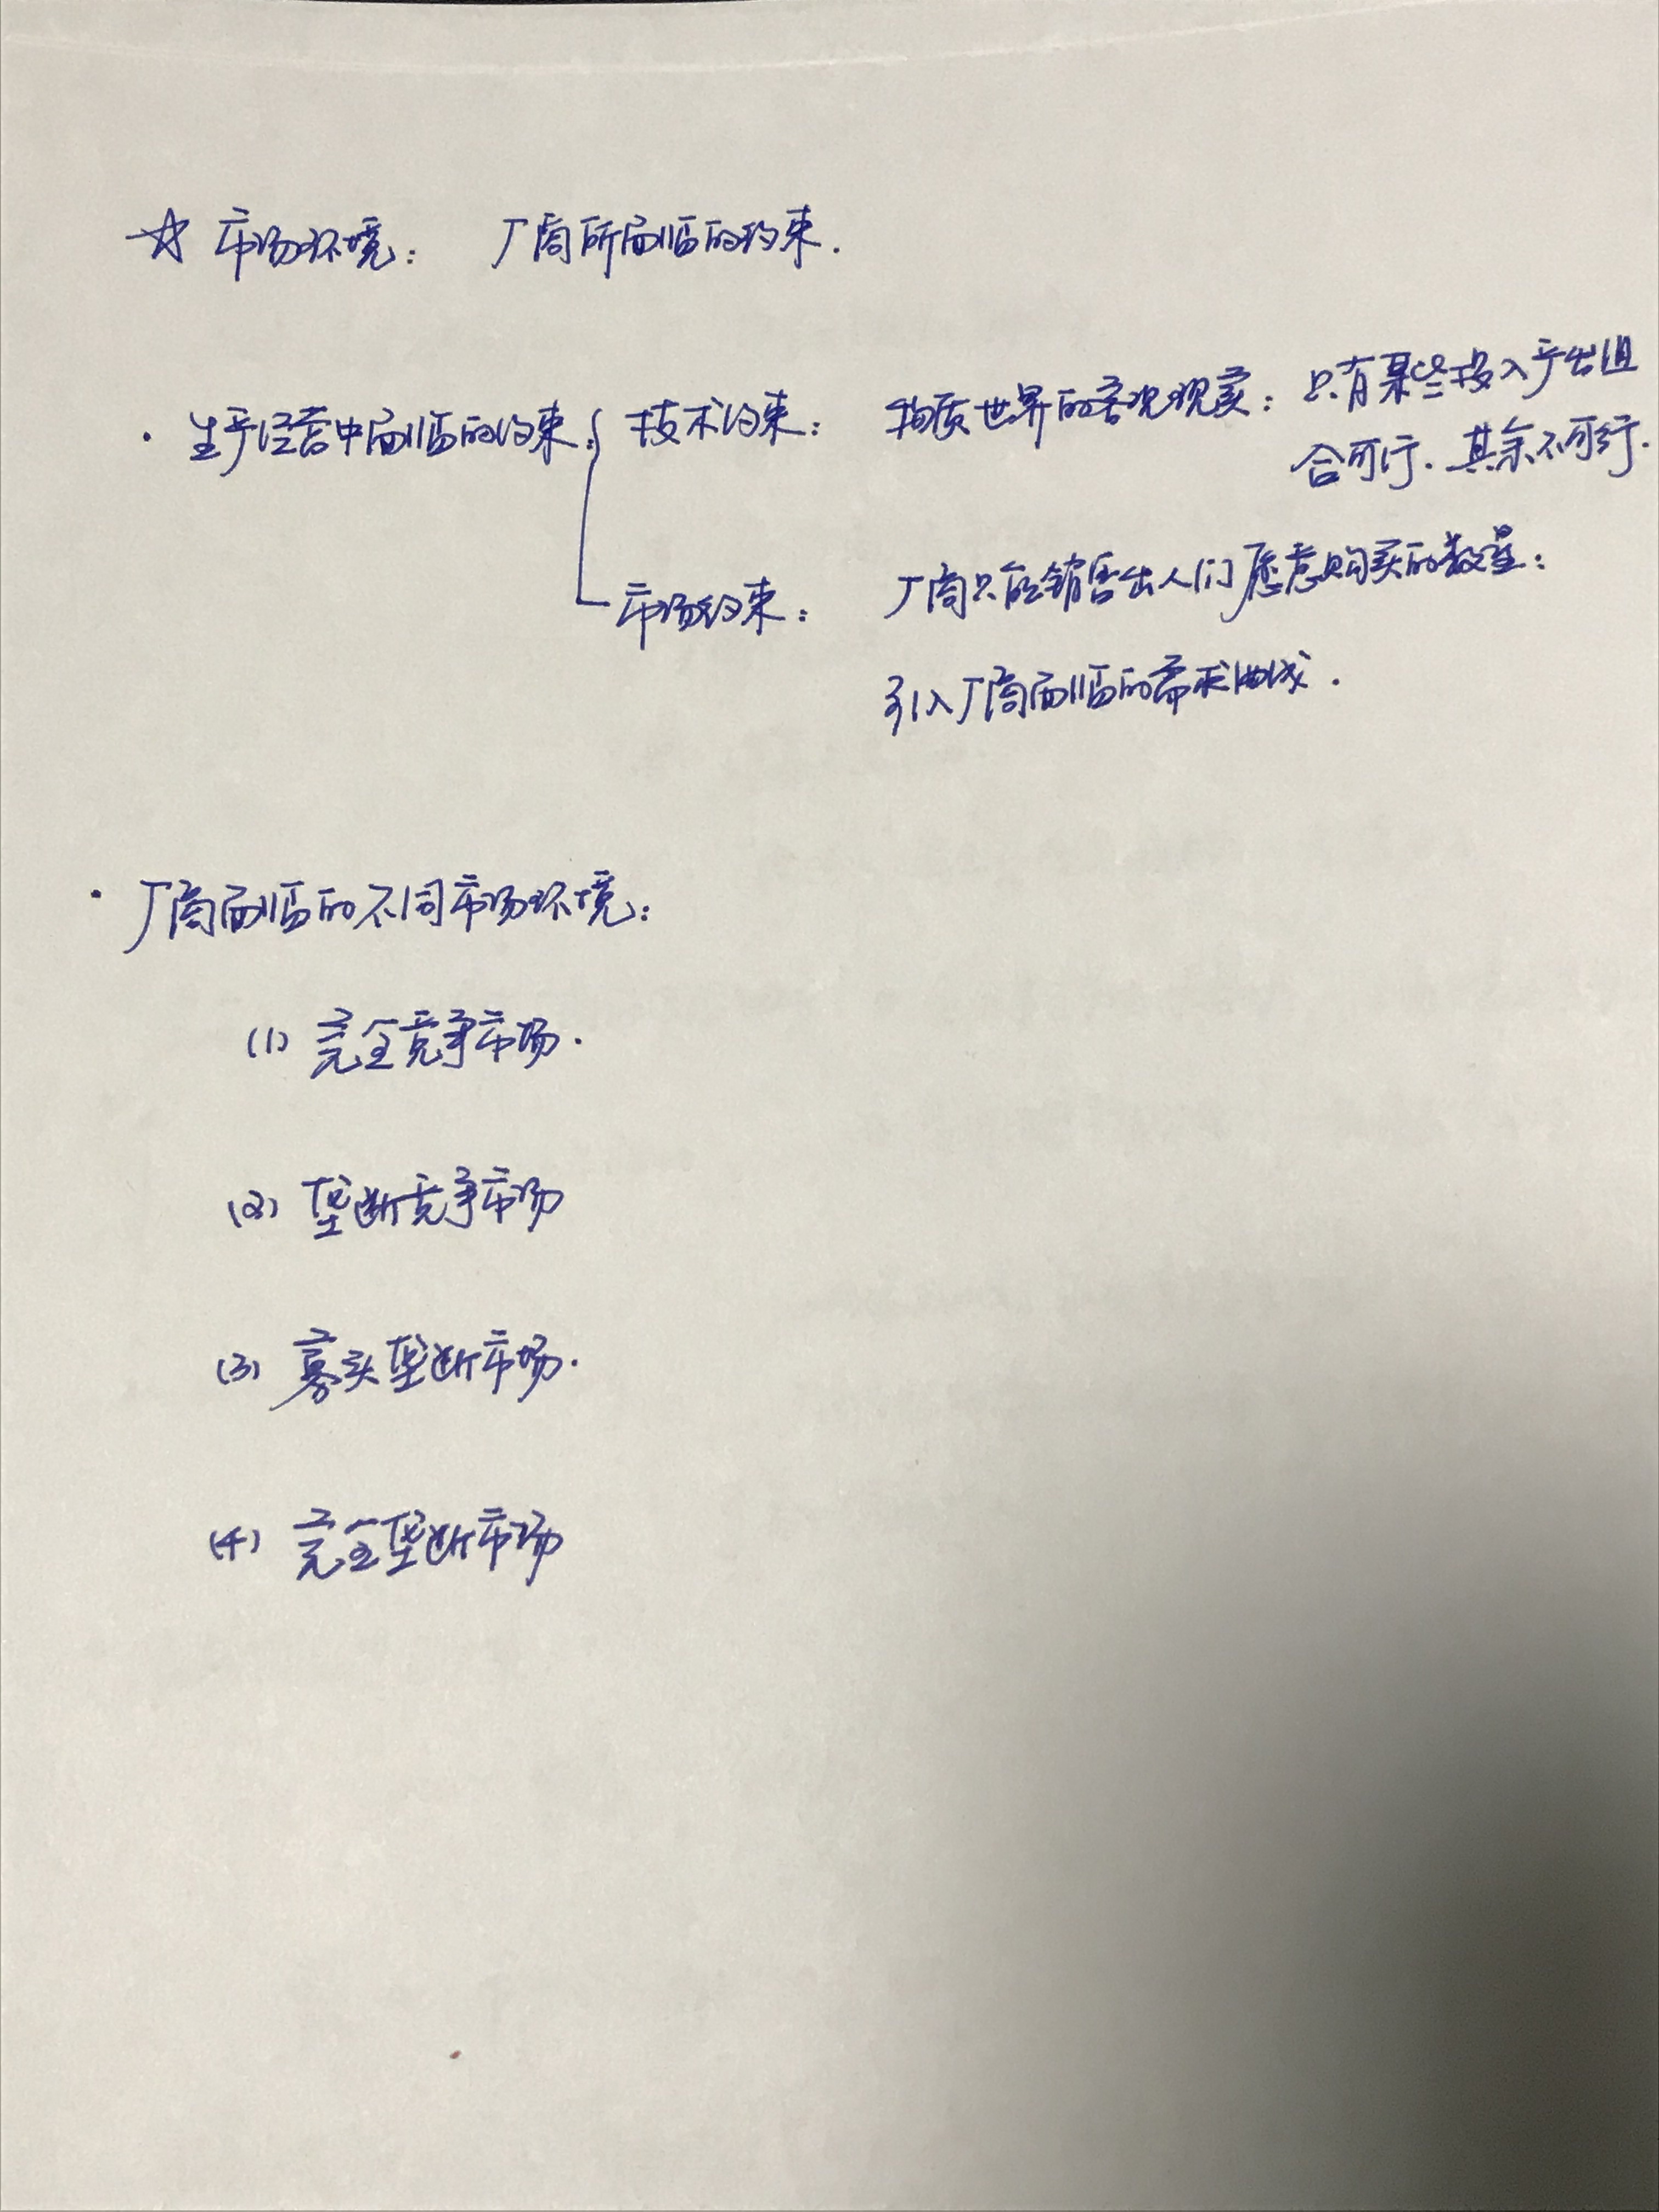 ☆ 市场环境： 厂商所面临的约束.
· 生产经营中面临的约束： 技术约束： 物质世界的客观现实：只有某些投入产出组
合可行. 其余不可行.
市场约束： 厂商只能销售出人们愿意购买的数量：
引入厂商面临的需求曲线.
· 厂商面临的不同市场环境：
(1) 完全竞争市场.
(2) 垄断竞争市场
(3) 寡头垄断市场.
(4) 完全垄断市场